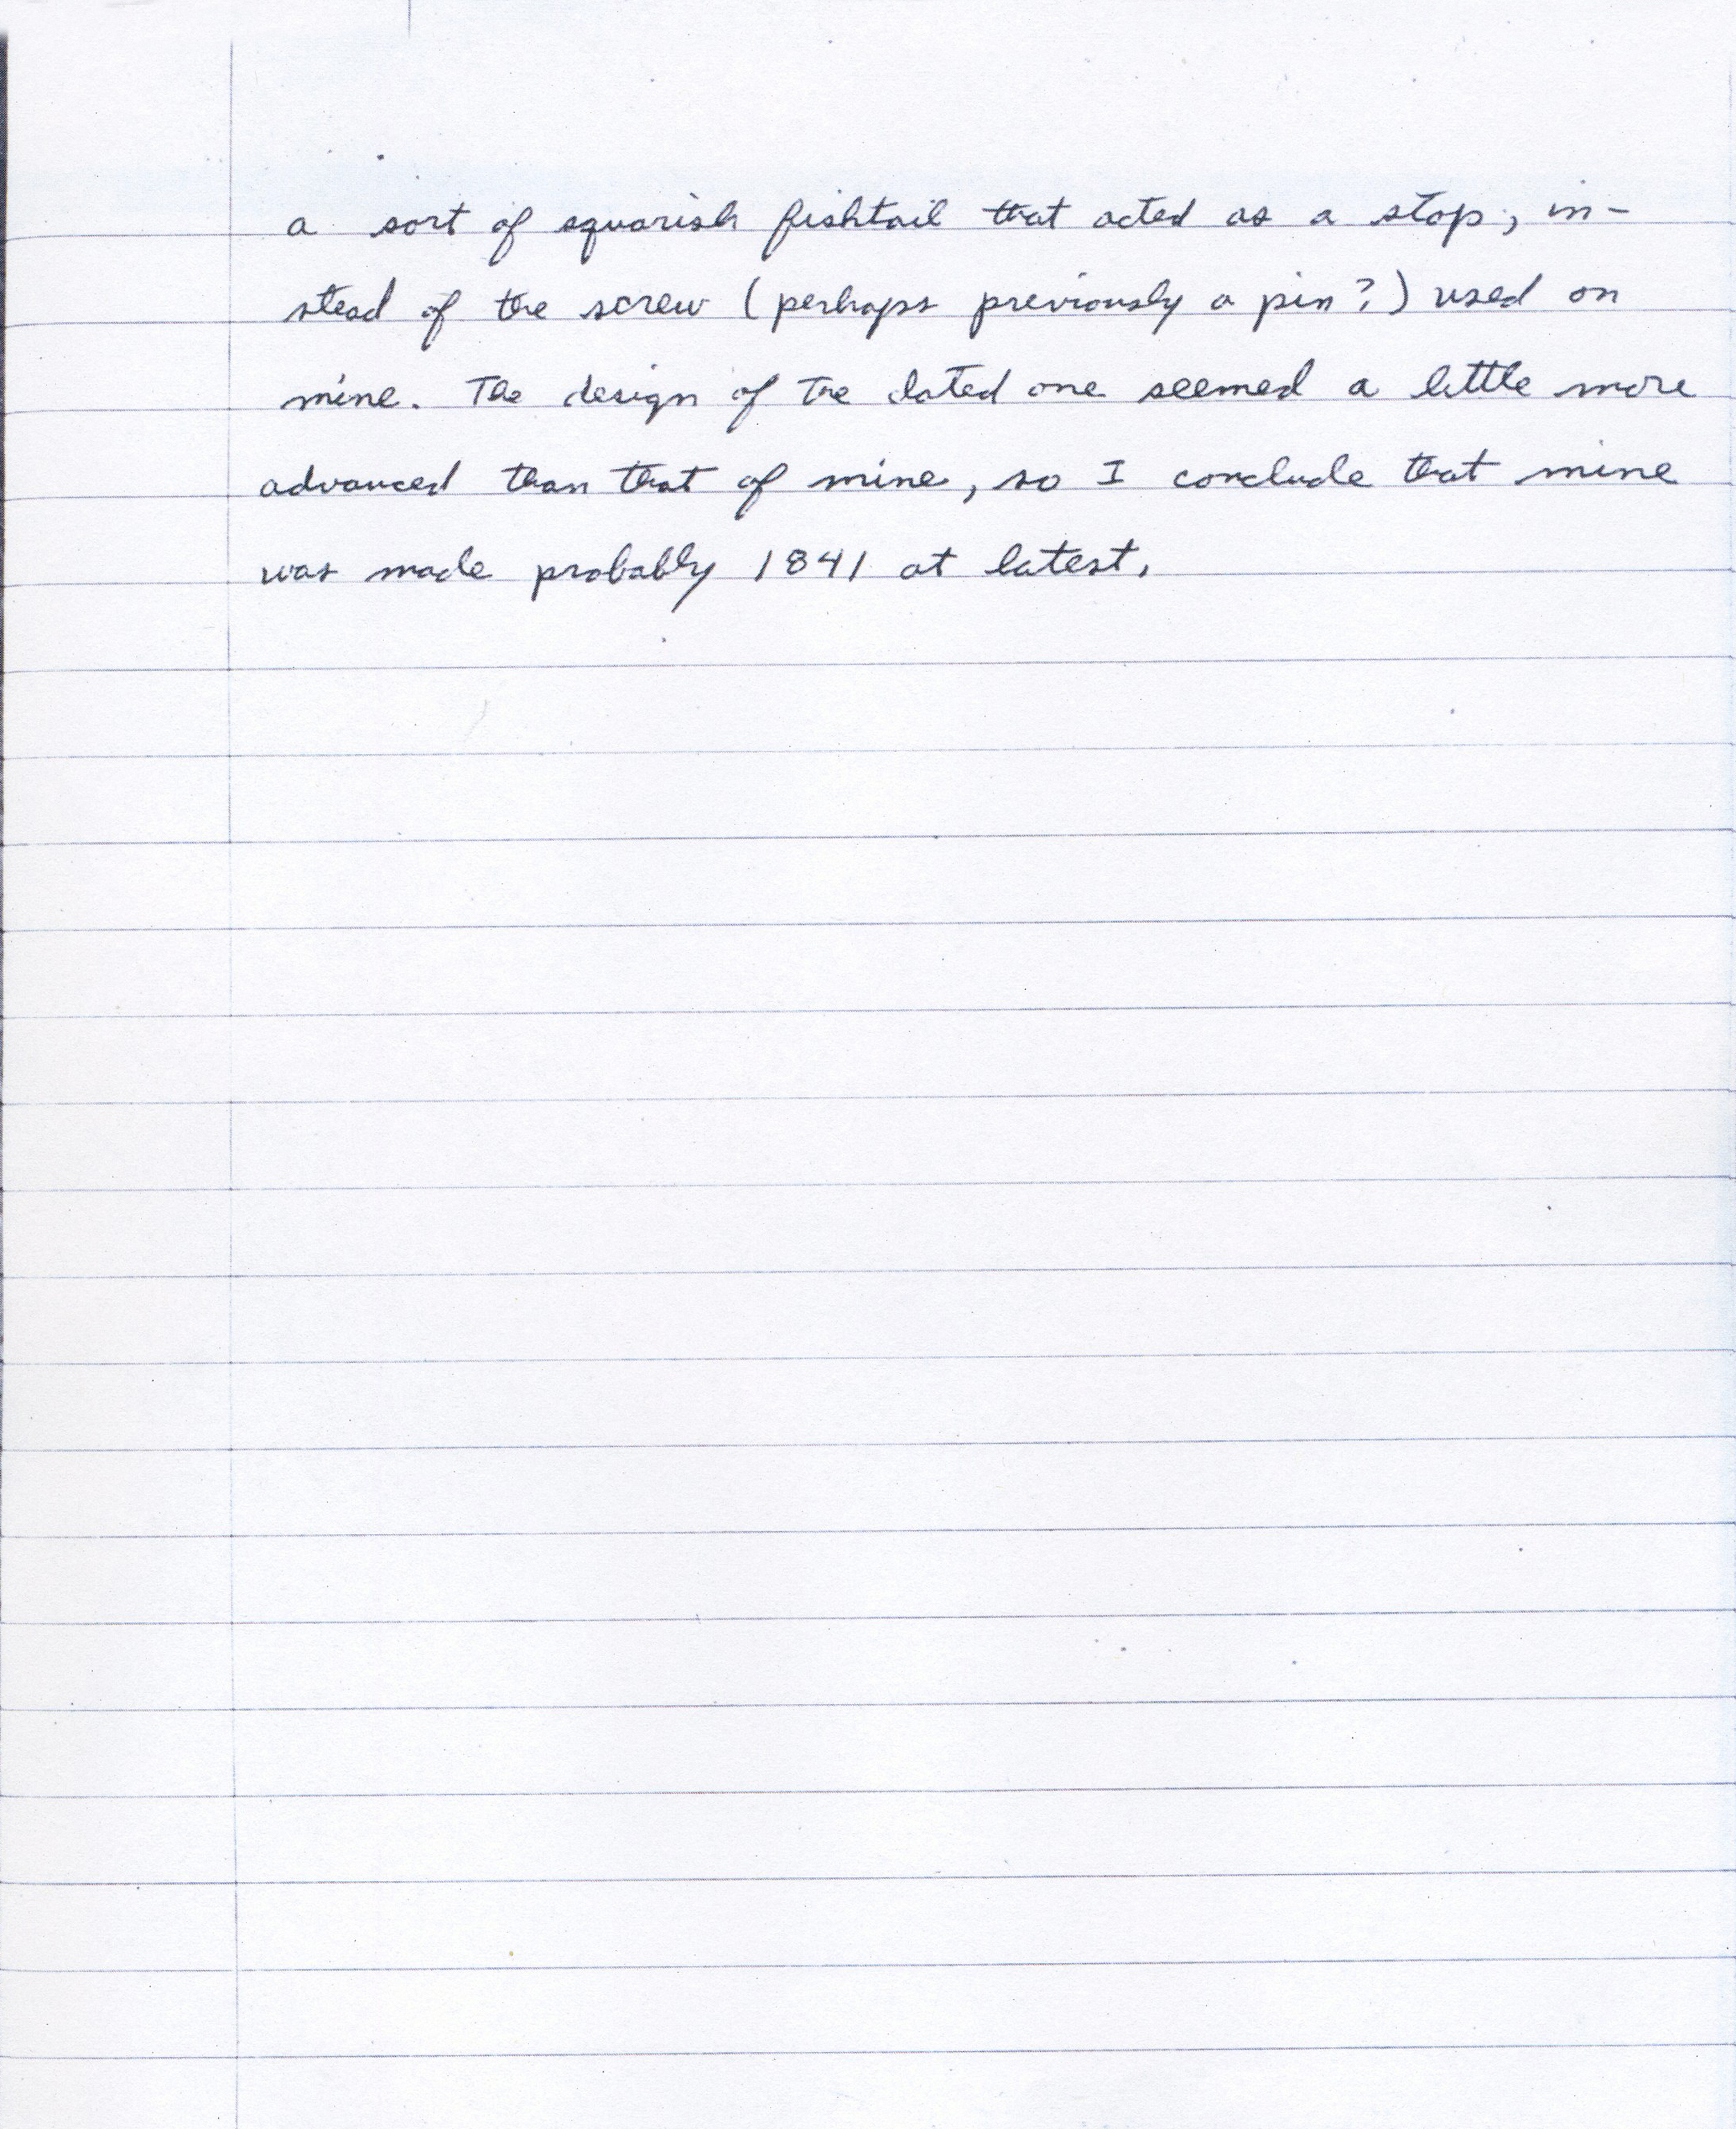 a sort of squarish fishtail that acted as a stop, in-
stead of the screw (perhaps previously a pin?) used on
mine. The design of the dated one seemed a little more
advanced than that of mine, so I conclude that mine
was made probably 1841 at latest.